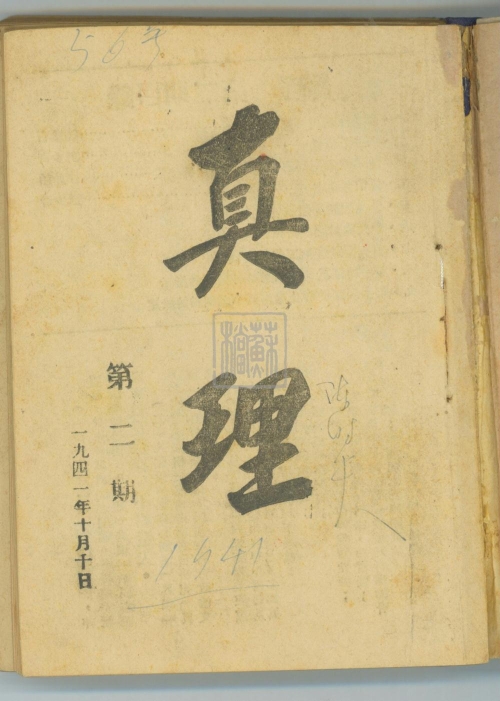 真理
第二期
一九四一年十月十日
1941